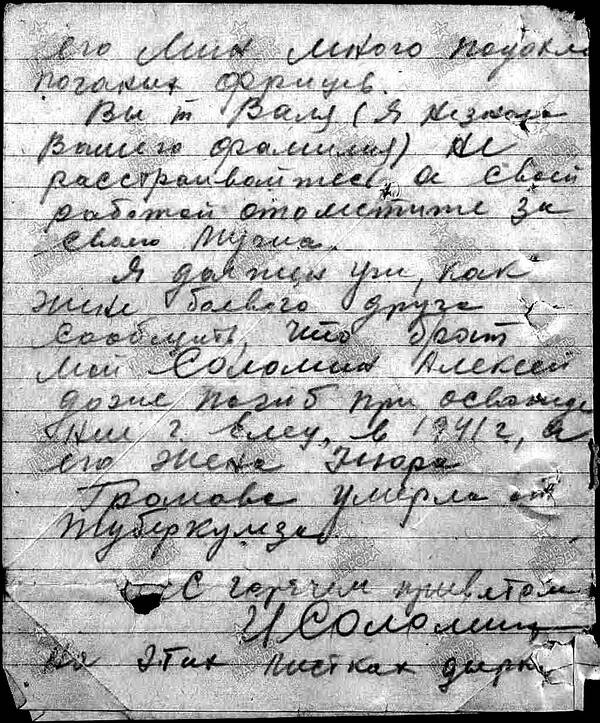 его мин много подохло
поганых фрицев.
Вы т. Валя (я незнаю
Вашего фамилия) не
расстраивайтесь, а своей
работой отомстите за
своего мужа.
Я должен уж, как
жене боевого друга
сообщить, что брат
мой Соломин Алексей
тоже погиб при освобожде
нии г. Елец, в 1941 г, а
его жена Нюра
Громова умерла от
туберкулмза.
С горячем приветом
И Соломин
на этих листках дырк